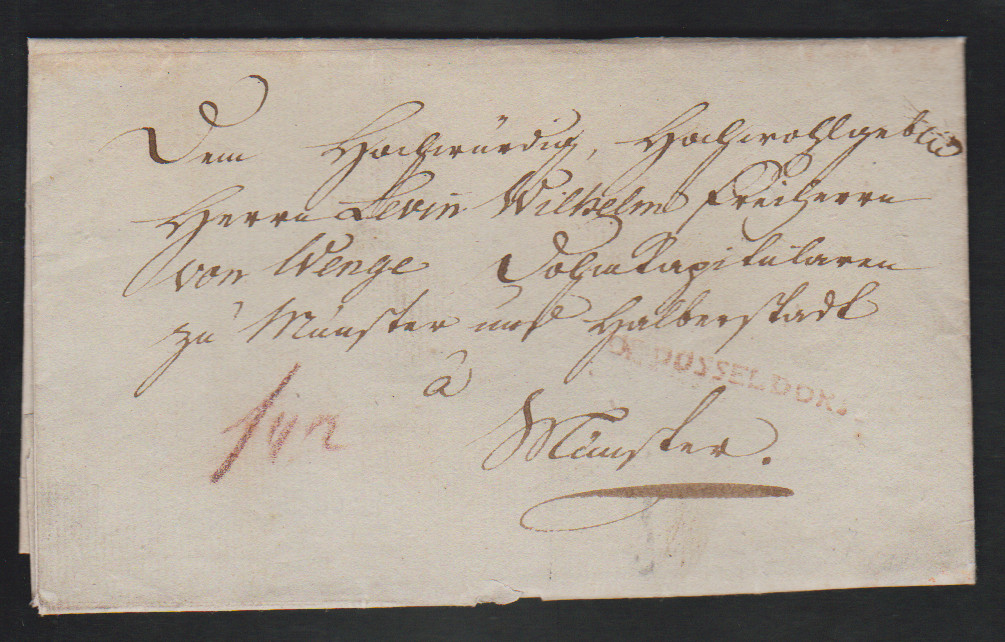 Dem Hochwürdig, Hochwohlgeb
Herrn Levin Wilhelm Freiherrn
von Wenge Dohmkapitularen
zu Münster und Halberstadt
DE DUYSELDORF
à
Münster.